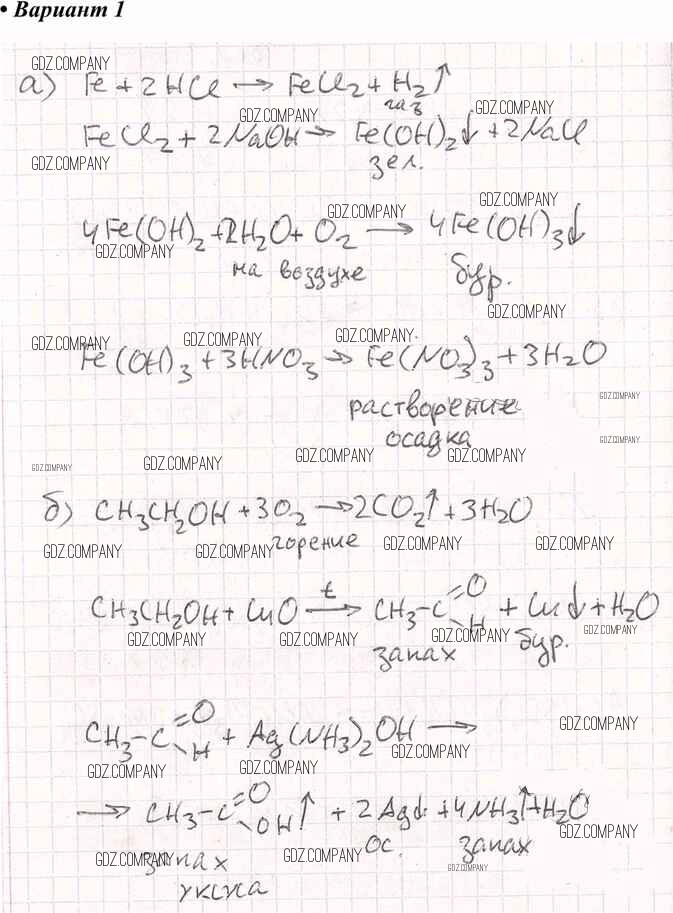 • Вариант 1
GDZ.COMPANY
а) Fe + 2HCl → FeCl₂ + H₂↑
газ
GDZ.COMPANY GDZ.COMPANY
FeCl₂ + 2NaOH → Fe(OH)₂↓ + 2NaCl
GDZ.COMPANY
зел.
GDZ.COMPANY
GDZ.COMPANY
4Fe(OH)₂ + 2H₂O + O₂ → 4Fe(OH)₃↓
GDZ.COMPANY
на воздухе бур.
GDZ.COMPANY
GDZ.COMPANY GDZ.COMPANY GDZ.COMPANY
Fe(OH)₃ + 3HNO₃ → Fe(NO₃)₃ + 3H₂O
GDZ.COMPANY
растворение
осадка
GDZ.COMPANY
GDZ.COMPANY GDZ.COMPANY GDZ.COMPANY GDZ.COMPANY
б) CH₃CH₂OH + 3O₂ → 2CO₂↑ + 3H₂O
горение
GDZ.COMPANY GDZ.COMPANY GDZ.COMPANY GDZ.COMPANY
CH₃CH₂OH + CuO →t CH₃-C=O-H + Cu↓ + H₂O
GDZ.COMPANY GDZ.COMPANY GDZ.COMPANY GDZ.COMPANY
запах бур.
CH₃-C=O-H + Ag(NH₃)₂OH →
GDZ.COMPANY
GDZ.COMPANY
GDZ.COMPANY GDZ.COMPANY
→ CH₃-C=O-OH↑ + 2Ag↓ + 4NH₃↑ + H₂O
GDZ.COMPANY
ос. запах
GDZ.COMPANY GDZ.COMPANY GDZ.COMPANY
запах
уксуса